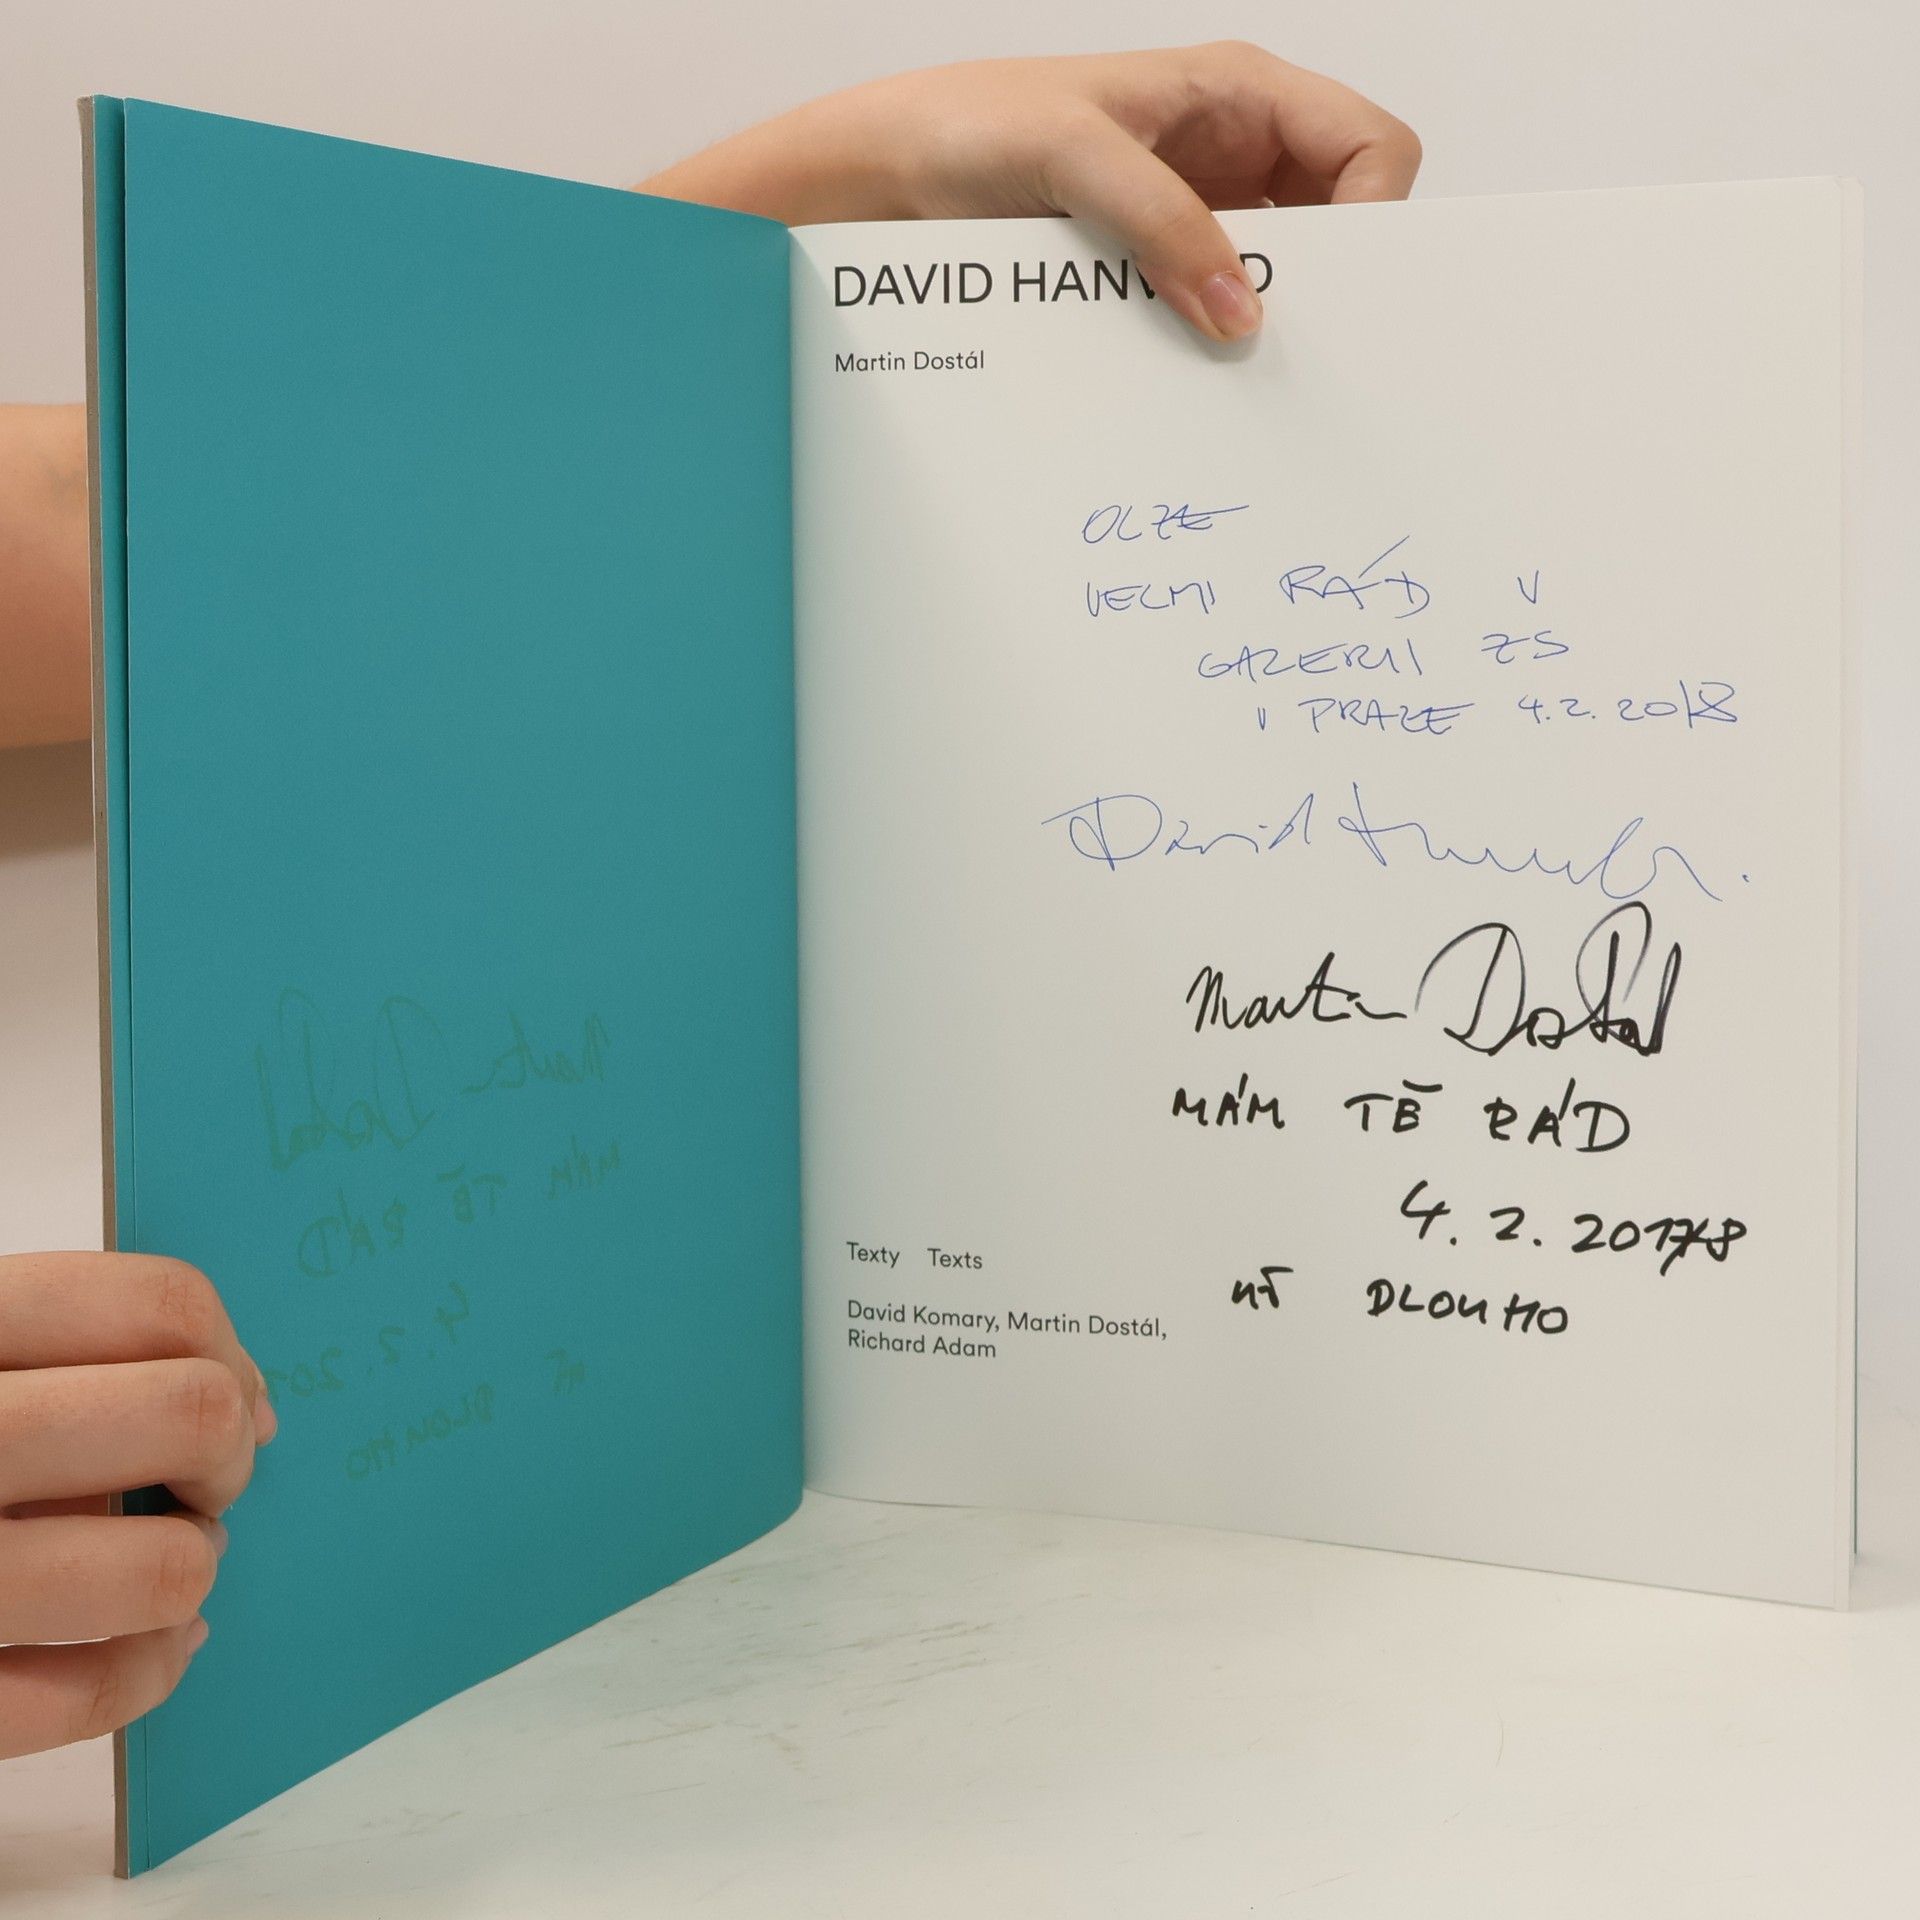 DAVID HAN D
Martin Dostál
OLZE
VELMI RÁD V
GALERII ZS
V PRAZE 4.2.2018
David
Martin Dostál
MÁM TĚ RÁD
4. 2. 2018
UŽ DLOUHO
Texty Texts
David Komary, Martin Dostál,
Richard Adam